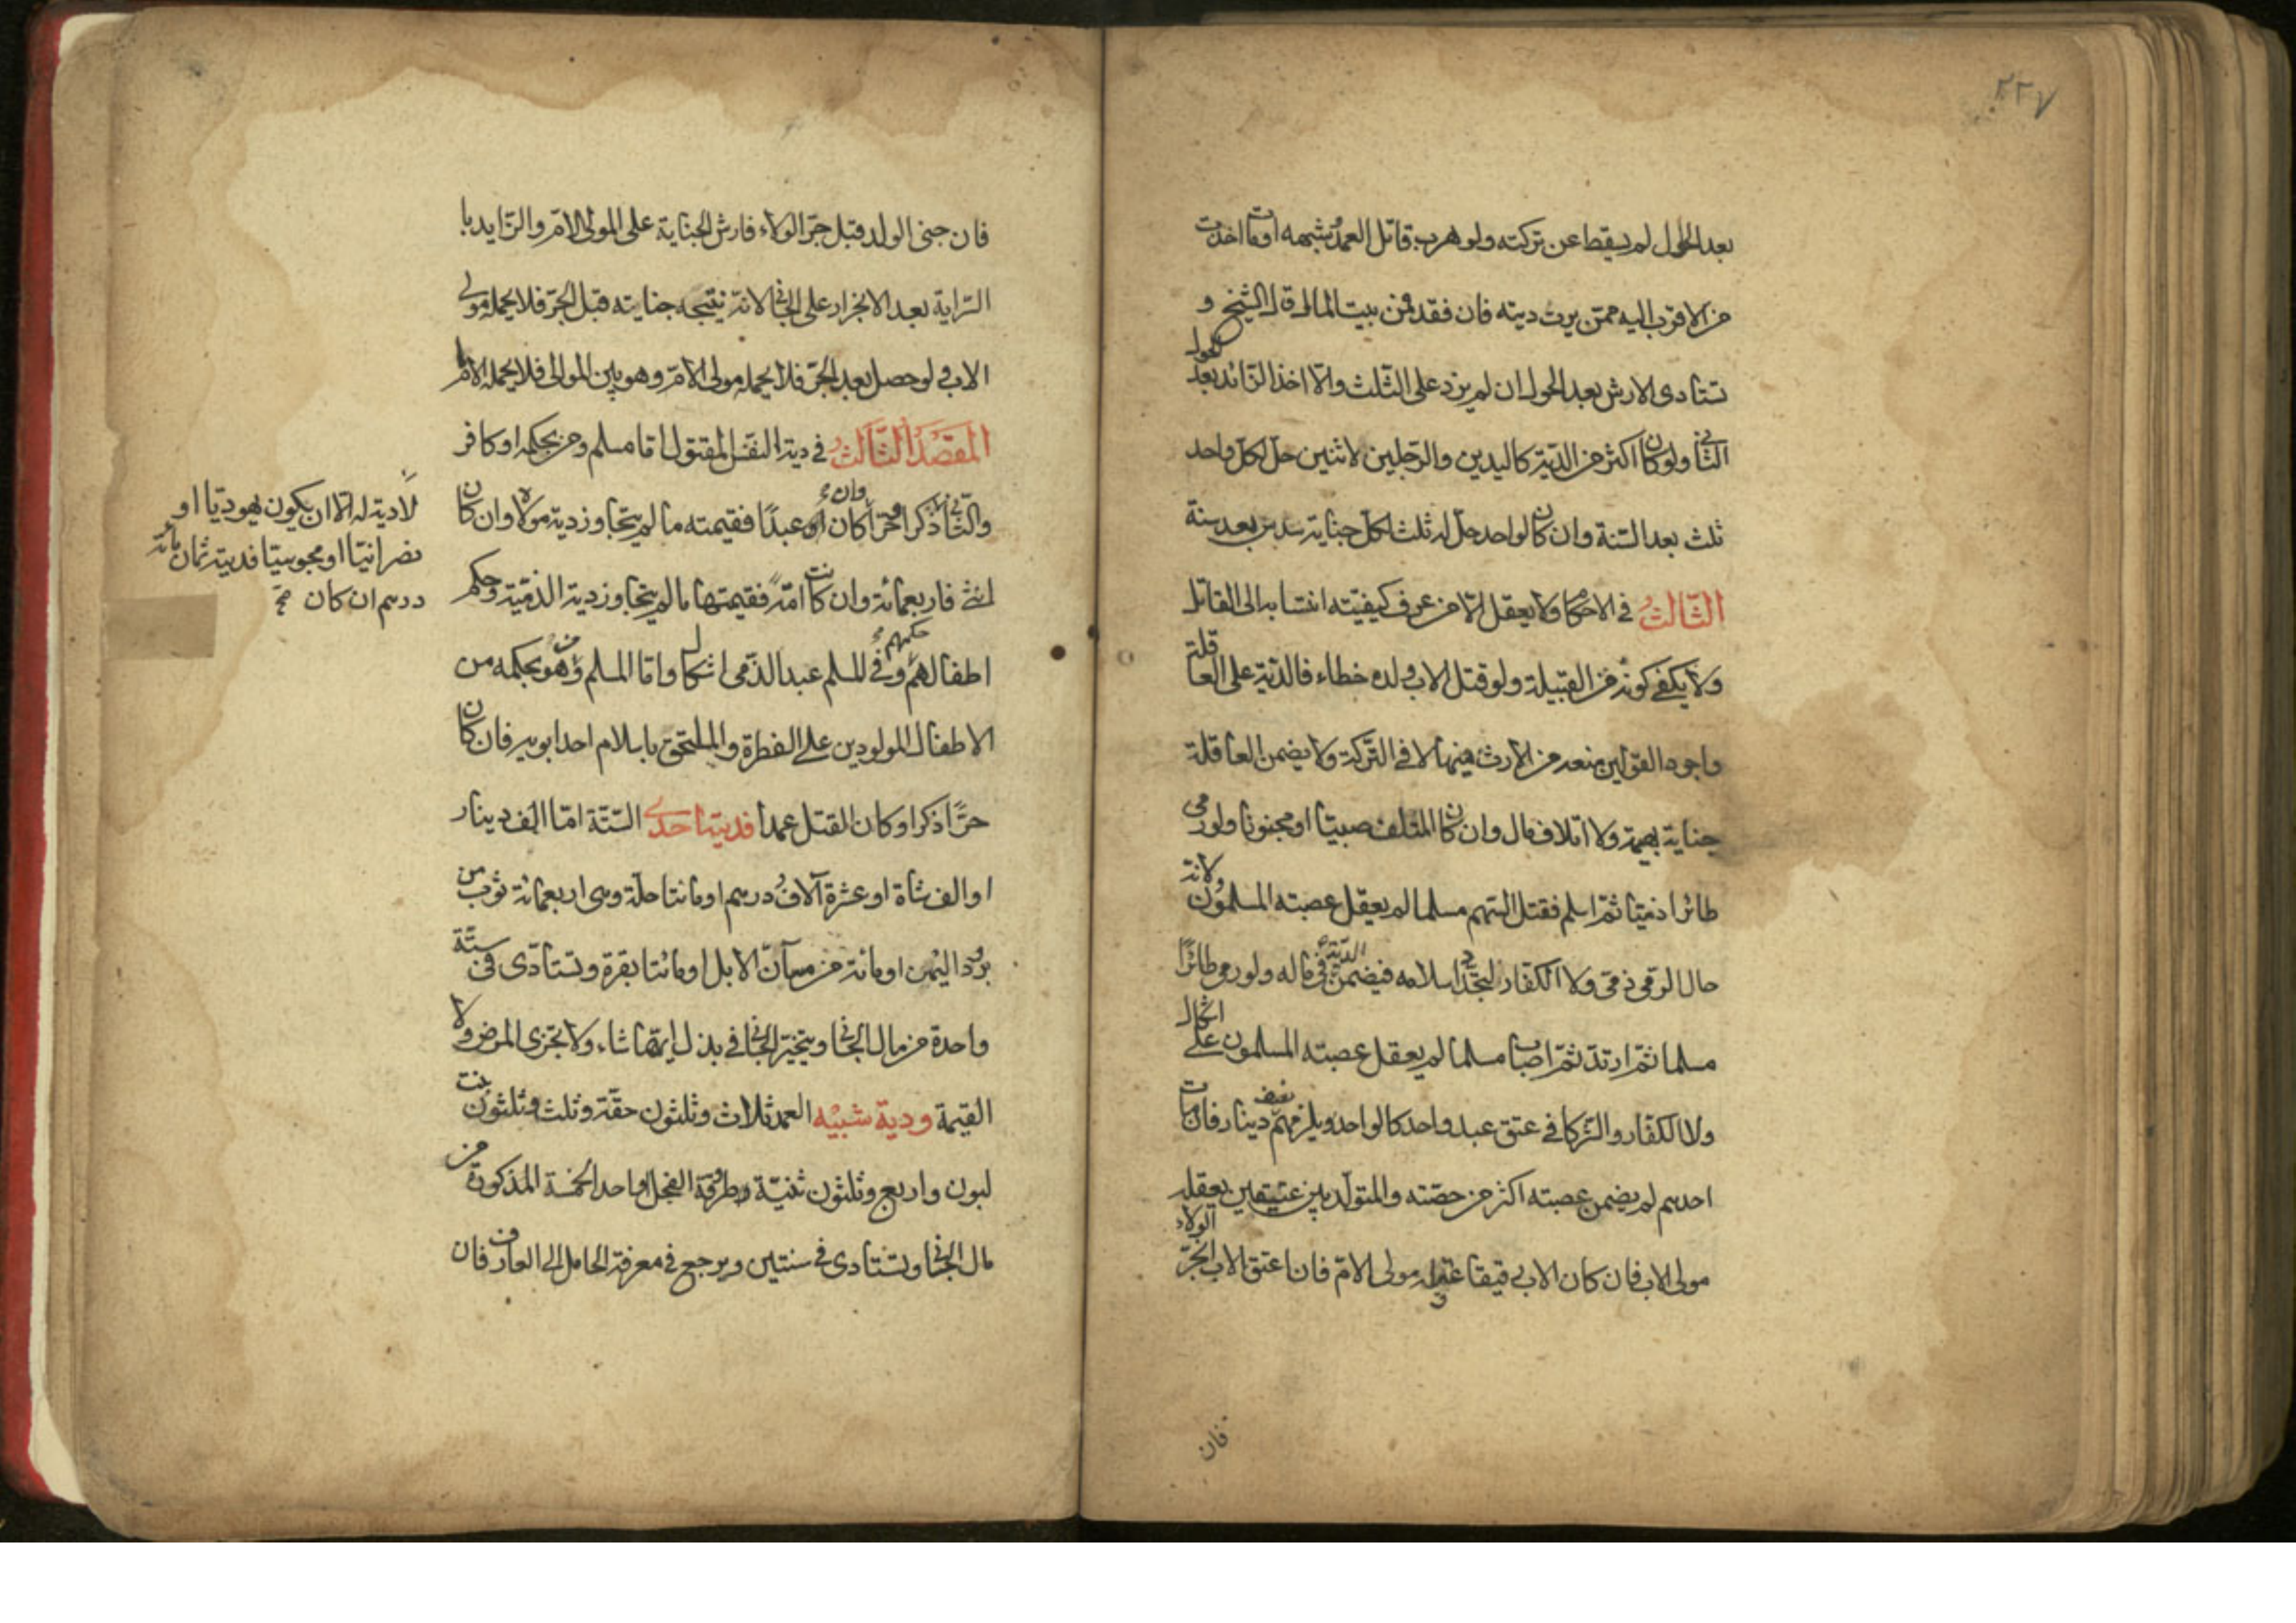 ٢٢٧
بعد الحول لم يسقط عن تركته ولو هرب قاتل العمد وشبهه او مات اخذت
من الاقرب اليه ممن يرث ديته فان فقد فمن بيت المال قال الشيخ و
تستادى الارش بعد الحول ان لم يزد على الثلث والا اخذ الزائد بعد الحول
الثاني ولو كان اكثر من الدية كاليدين والرجلين لاثنين حل لكل واحد
ثلث بعد السنة وان كان لواحد حل له ثلث لكل جناية سدس بعد سنة
الثالث في الاحكام ولا يعقل الا من عرف كيفيته انتسابه الى القاتل
ولا يكفى كونه من القبيلة ولو قتل الاب ولده خطاء فالدية على العاقلة
واجود القولين منعه من الارث فيها لا في التركة ولا يضمن العاقلة
جناية بهيمة ولا اتلاف مال وان كان المتلف صبيا او مجنونا ولو رمى
طائرا ذميا ثم اسلم فقتل السهم مسلما لم يعقل عصبته المسلمون لانه
حال الرمي ذمي ولا الكفار لتجدد اسلامه فيضمن الدية في ماله ولو رمى طائرا
مسلما ثم ارتد ثم اصاب مسلما لم يعقل عصبته المسلمون على اشكال
ولا الكفار والشركا في عتق عبد واحد كالواحد ويلزمهم نصف دينار فان مات
احدهم لم يضمن عصبته اكثر من حصته والمتولد بين عتيقين يعقله
مولى الاب فان كان الاب رقيقا عقله مولى الام فان اعتق الاب انجر الولاء
فان
فان جنى الولد قبل جر الولاء فارش الجناية على المولى الام والزايد با
السراية بعد الانجرار على الجاني لانه نتيجه جنايته قبل الجر فلا يحمله مولى
الاب ولو حصل بعد الجر فلا يحمله مولى الام وهو بين الموالى فلا يحمله الامام
المقصد الثالث في دية النفس المقتول اما مسلم ومن بحكمه او كافر
والثاني لا ذكرا حرا كان او عبدا فقيمته ما لم يتجاوز دية مولاه وان كان
انثى فاربعمائة وان كانت امة فقيمتها ما لم يتجاوز دية الذمية وحكم
اطفالهم حكمهم وفي المسلم عبد الذمي اشكال واما المسلم ومن هو بحكمه من
الاطفال المولودين على الفطرة والملتحق باسلام احد ابويه فان كان
حرا ذكرا وكان القتل عمدا فديته احدى الستة اما الف دينار
او الف شاة او عشرة آلاف درهم او مائتا حلة وهى اربعمائة ثوب من
برود اليمن او مائة من مسان الابل او مائتا بقرة وتستادى في ستة
واحدة من مال الجاني ويتخير الجاني في بذل ايها شاء ولا تجزى المرض ولا
القيمة ودية شبيه العمد ثلاث وثلثون حقة وثلث وثلثون بنت
لبون واربع وثلثون ثنية طروقة الفحل او احد الخمسة المذكورة من
مال الجاني وتستادى في سنتين ويرجع في معرفة الحامل الى العارف فان
لا دية له الا ان يكون يهوديا او
نصرانيا او مجوسيا فديته ثمان مائة
درهم ان كان صح